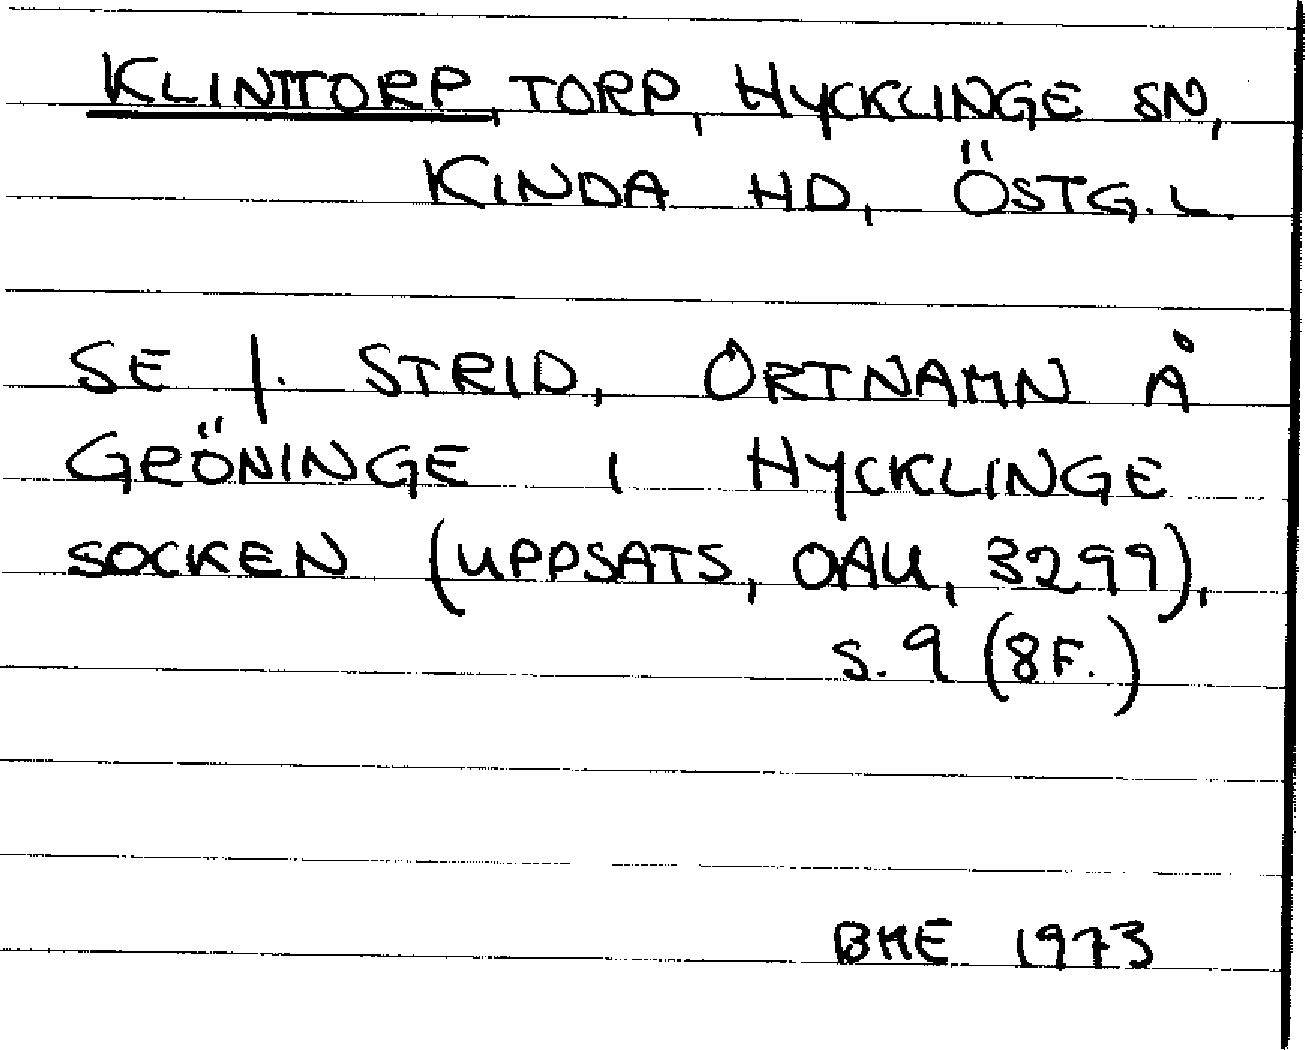 KLINTTORP, TORP, HYCKLINGE SN,
KINDA HD, ÖSTG. L.
SE I. STRID, ORTNAMN Å
GRÖNINGE I HYCKLINGE
SOCKEN (UPPSATS, OAU, 3299),
S. 9 (8F.)
BME 1973